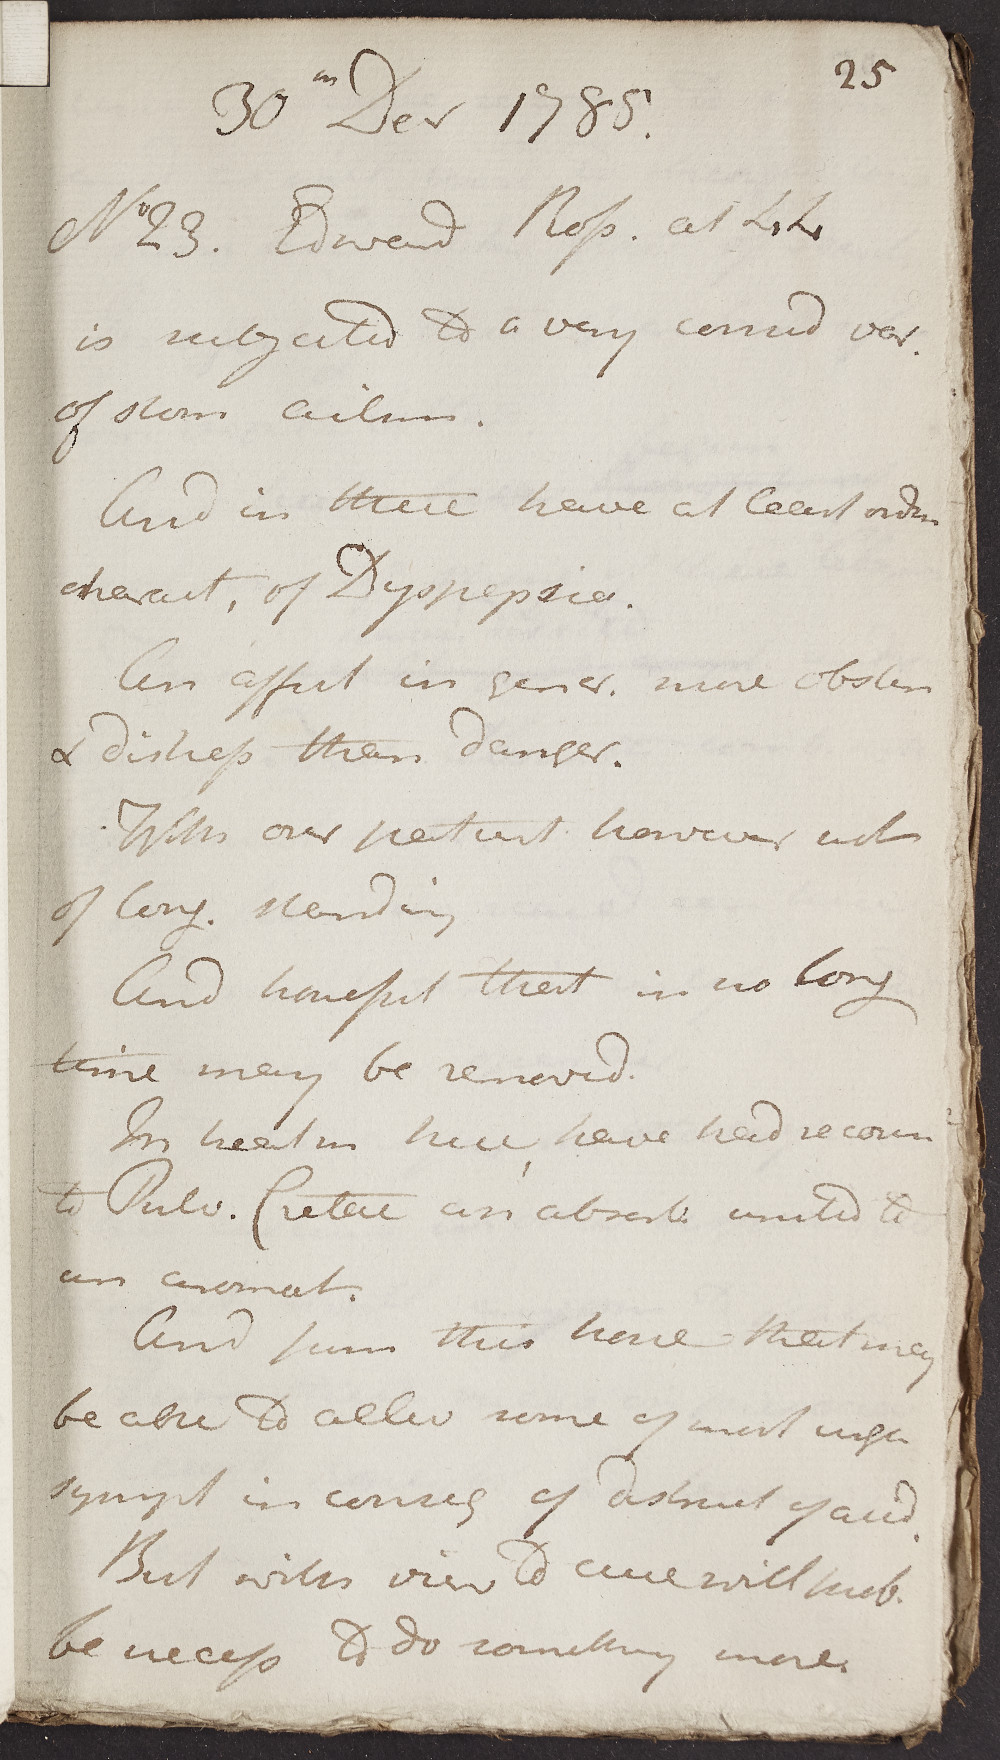 25
30th Decr 1785.
No 23. Edward Ross. aet 44
is subjected to a very consid var.
of stom ailm.
And in these have at least ordin
charact, of Dyspepsia.
An affect in gener. more obstin
& distress than danger.
With our patient however not
of long. standing
And hopefull that in no long
time may be removed.
In treatm here, have had recour
to Pulv. Cretae an absorb. united to
an aromat.
And from this hope that may
be able to allev some of most urgen
sympt in conseq of destruct of acid.
But with view to cure will prob.
be necess to do something more.